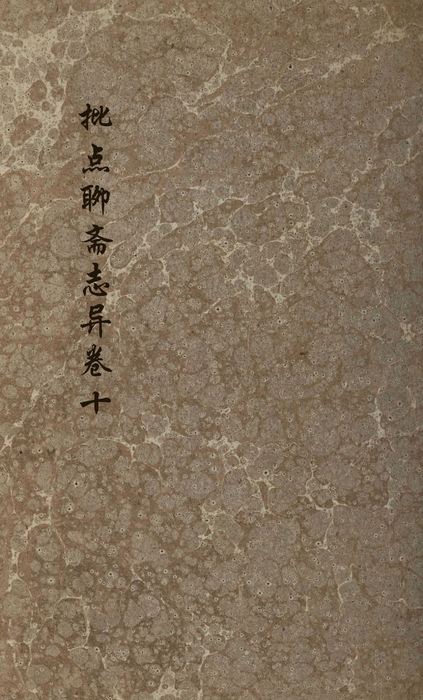 批点聊斋志异卷十